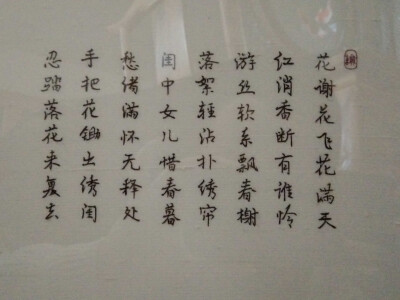 花谢花飞花满天
红消香断有谁怜
游丝软系飘春榭
落絮輕沾扑绣帘
闺中女儿惜春暮
愁借满怀无释处
手把花锄出绣闺
忍踏落花来复去